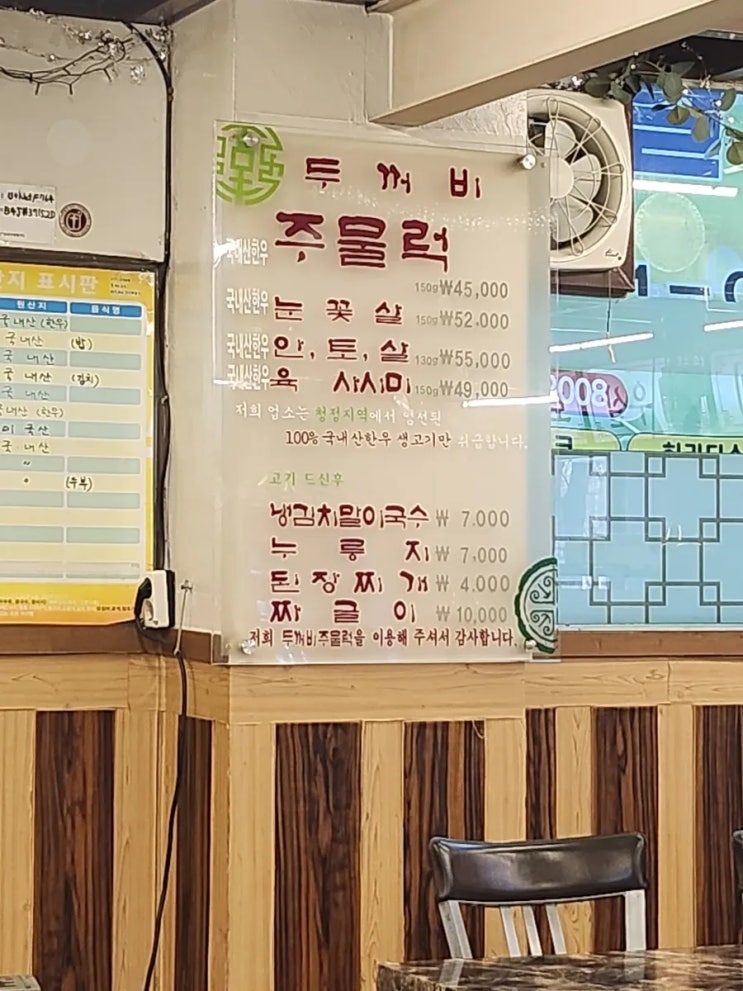 두꺼비
국내산한우 주물럭
150g ₩45,000
국내산한우 눈꽃살 150g ₩52.000
국내산한우 안,토,살 130g ₩55,000
국내산한우 육 사시미 150g ₩49,000
저희 업소는 청정지역에서 엄선된
100% 국내산한우 생고기만 취급합니다.
고기 드신후
냉김치말이국수 ₩ 7.000
누룽지 ₩ 7,000
된장찌개 ₩ 4.000
짜글이 ₩ 10,000
저희 두꺼비주물럭을 이용해 주셔서 감사합니다.
표시판
원산지 음식명
국내산 (한우)
국내산 (밥)
국내산
국내산 (김치)
국내산
국내산 (한우)
미국산
국내산
"
(두부)
2008